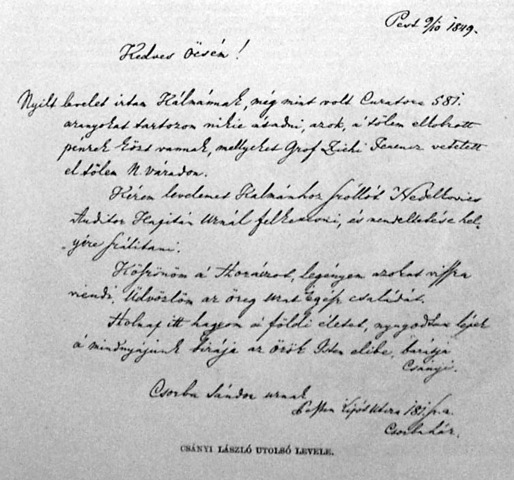 Pest 9/10 1849.
Kedves Öcsém!
Nyilt levelet irtam Kálmánnak, még mint volt Curatora 581.
aranyokat tartozom nikie átadni, azok, a' tőlem elkobzott
pénzek közt vannak, mellyeket Gróf Zichi Ferencz vetetett
el tőlem N. váradon.
Kérem levelemet Kálmánhoz szóllót Nedelkovics
Auditor Kapitán Urnál felkeresni, és rendeltetése hel-
yére szálitani.
Köszönöm á' legényem azokat vissza
viendi, Üdvözlöm az öreg urat egész családját.
Holnap itt hagyom a' földi életet, nyugodtan lépek
á mindnyájunk birája az örök Isten elibe, barátja
Csányi.
Csorba Sándor urnak
Pesten utcza 181
Csorbaház.
CSÁNYI LÁSZLÓ UTOLSÓ LEVELE.